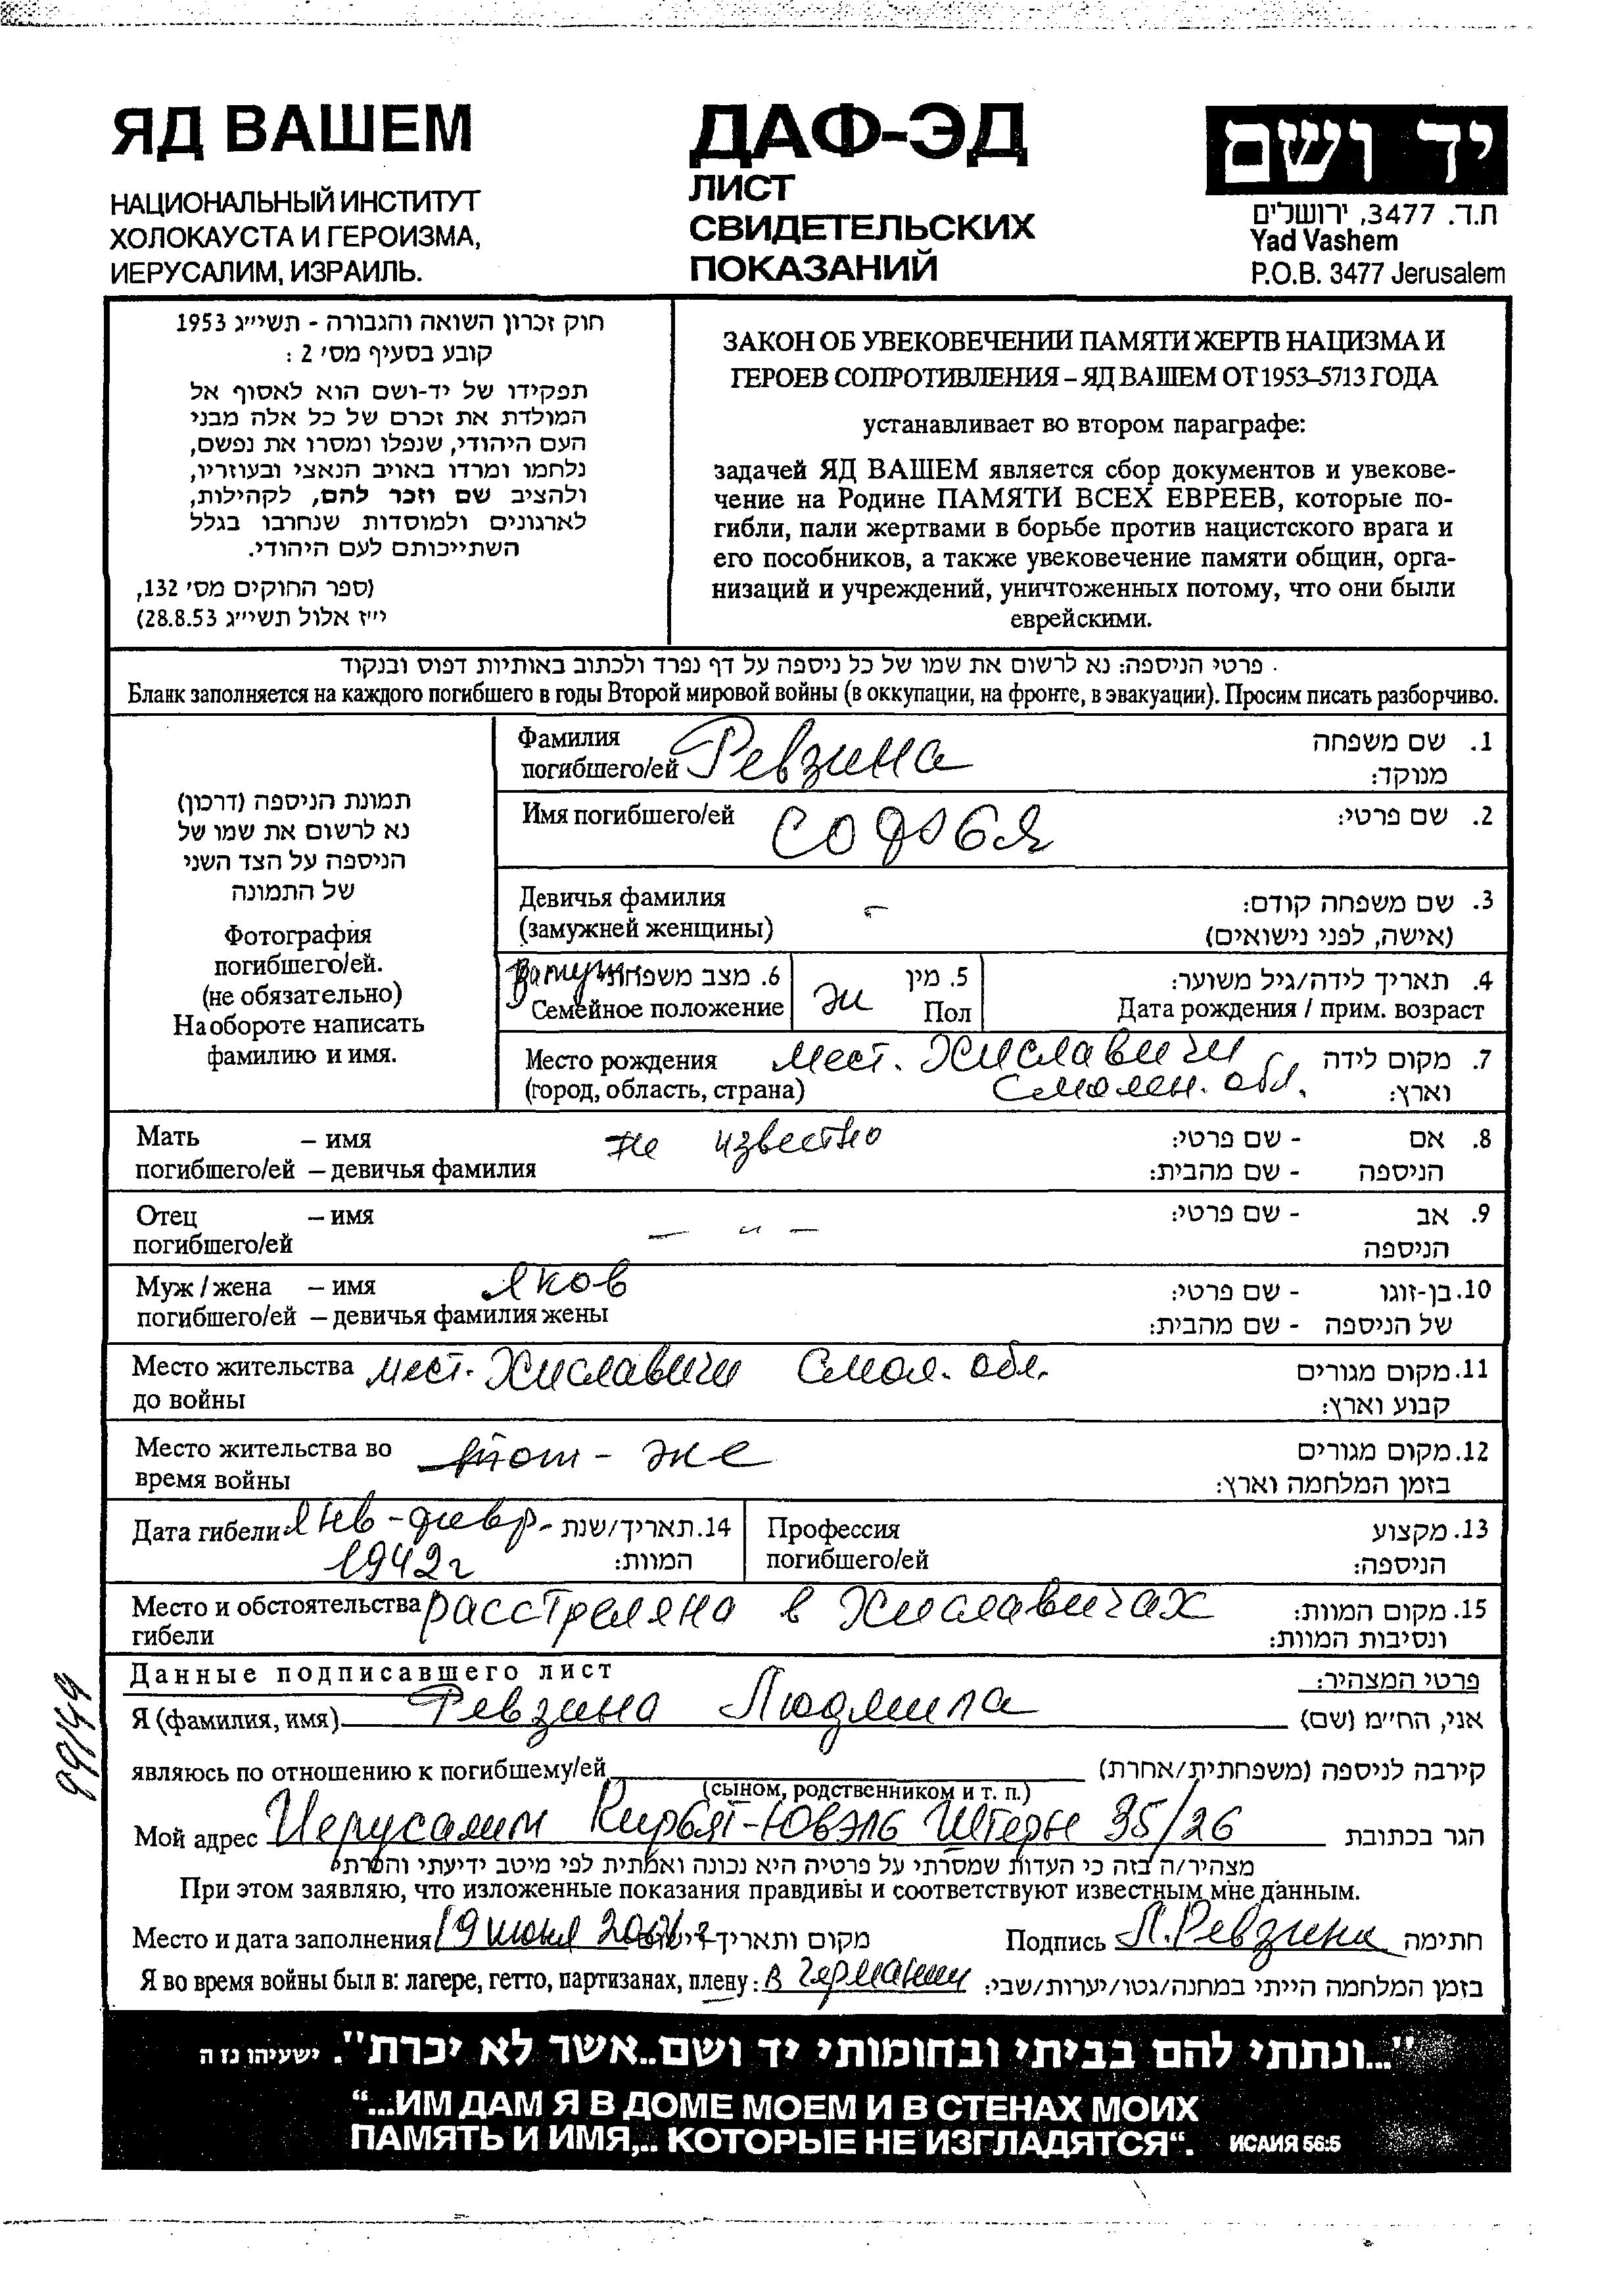 ЯД ВАШЕМ
НАЦИОНАЛЬНЫЙ ИНСТИТУТ
ХОЛОКАУСТА И ГЕРОИЗМА,
ИЕРУСАЛИМ, ИЗРАИЛЬ.
ДАФ-ЭД
ЛИСТ
СВИДЕТЕЛЬСКИХ
ПОКАЗАНИЙ
יד ושם
ת.ד. 3477, ירושלים
Yad Vashem
P.O.B. 3477 Jerusalem
חוק זכרון השואה והגבורה - תשי״ג 1953
קובע בסעיף מס׳ 2 :
תפקידו של יד-ושם הוא לאסוף אל
המולדת את זכרם של כל אלה מבני
העם היהודי, שנפלו ומסרו את נפשם,
נלחמו ומרדו באויב הנאצי ובעוזריו,
ולהציב שם וזכר להם, לקהילות,
לארגונים ולמוסדות שנחרבו בגלל
השתייכותם לעם היהודי.
(ספר החוקים מס׳ 132,
י״ז אלול תשי״ג 28.8.53)
ЗАКОН ОБ УВЕКОВЕЧЕНИИ ПАМЯТИ ЖЕРТВ НАЦИЗМА И
ГЕРОЕВ СОПРОТИВЛЕНИЯ – ЯД ВАШЕМ ОТ 1953–5713 ГОДА
устанавливает во втором параграфе:
задачей ЯД ВАШЕМ является сбор документов и увекове-
чение на Родине ПАМЯТИ ВСЕХ ЕВРЕЕВ, которые по-
гибли, пали жертвами в борьбе против нацистского врага и
его пособников, а также увековечение памяти общин, орга-
низаций и учреждений, уничтоженных потому, что они были
еврейскими.
פרטי הניספה: נא לרשום את שמו של כל ניספה על דף נפרד ולכתוב באותיות דפוס ובנקוד
Бланк заполняется на каждого погибшего в годы Второй мировой войны (в оккупации, на фронте, в эвакуации). Просим писать разборчиво.
תמונת הניספה (דרכון)
נא לרשום את שמו של
הניספה על הצד השני
של התמונה
Фотография
погибшего/ей.
(не обязательно)
На обороте написать
фамилию и имя.
Фамилия 1. שם משפחה
погибшего/ей Ревзина מנוקד:
Имя погибшего/ей Софья 2. שם פרטי:
Девичья фамилия – 3. שם משפחה קודם:
(замужней женщины) (אישה, לפני נישואים)
Замуж 6. מצב משפחתי жи 5. מין 4. תאריך לידה/גיל משוער:
Семейное положение Пол Дата рождения / прим. возраст
Место рождения мест. Хиславичи 7. מקום לידה
(город, область, страна) Смолен. обл. וארץ:
Мать – имя не известно 8. אם - שם פרטי:
погибшего/ей – девичья фамилия הניספה - שם מהבית:
Отец – имя — и — 9. אב - שם פרטי:
погибшего/ей הניספה
Муж / жена – имя Яков 10. בן-זוגו - שם פרטי:
погибшего/ей – девичья фамилия жены של הניספה - שם מהבית:
Место жительства мест. Хиславичи Смол. обл. 11. מקום מגורים
до войны קבוע וארץ:
Место жительства во тот-же 12. מקום מגורים
время войны בזמן המלחמה וארץ:
Дата гибели Янв-февр- 14. תאריך/שנת Профессия 13. מקצוע
1942г המוות: погибшего/ей הניספה:
Место и обстоятельства расстреляна в Хиславичах 15. מקום המוות:
гибели ונסיבות המוות:
Данные подписавшего лист פרטי המצהיר:
Я (фамилия, имя) Ревзина Людмила אני, הח״מ (שם)
являюсь по отношению к погибшему/ей קירבה לניספה (משפחתית/אחרת)
(сыном, родственником и т. п.)
Мой адрес Иерусалим Кирьят-Ювэль Штерн 35/26 הגר בכתובת
מצהיר/ה בזה כי העדות שמסרתי על פרטיה היא נכונה ואמתית לפי מיטב ידיעתי והכרתי
При этом заявляю, что изложенные показания правдивы и соответствуют известным мне данным.
Место и дата заполнения 19 июня מקום ותאריך Подпись Л. Ревзина חתימה
Я во время войны был в: лагере, гетто, партизанах, плену: в Германии בזמן המלחמה הייתי במחנה/גטו/יערות/שבי:
99/149
"...ונתתי להם בביתי ובחומותי יד ושם..אשר לא יכרת". ישעיהו נז ה
“...ИМ ДАМ Я В ДОМЕ МОЕМ И В СТЕНАХ МОИХ
ПАМЯТЬ И ИМЯ,.. КОТОРЫЕ НЕ ИЗГЛАДЯТСЯ“. ИСАИЯ 56:5